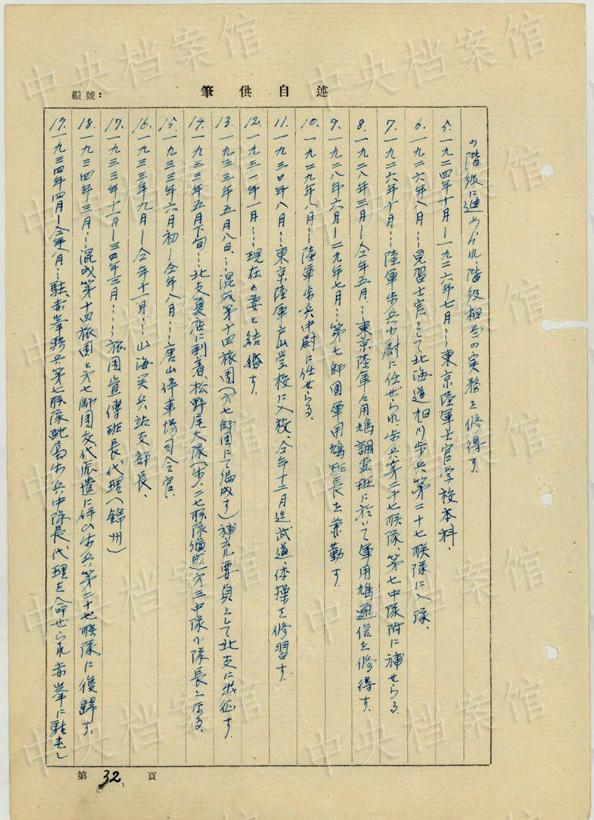 編號:
筆供自述
の階級に進められ、階級相当の実務を修得す。
5. 一九二四年十月—一九二六年七月…東京陸軍士官学校本科、
6. 一九二六年八月…見習士官として北海道旭川歩兵第二十七聯隊に入隊、
7. 一九二六年十月…陸軍歩兵少尉に任ぜられ歩兵第二十七聯隊、第七中隊附に補せらる
8. 一九二八年三月—今年五月…東京陸軍々用鳩調査班に於いて軍用鳩通信を修得す、
9. 一九二八年六月—二九年七月…第七師団軍用鳩班長を兼勤す、
10. 一九二九年八月…陸軍歩兵中尉に任ぜらる、
11. 一九三〇年八月…東京陸軍戸山学校に入校、今年十二月迄武道、体操を修習す、
12. 一九三一年一月…現在の妻と結婚す、
13. 一九三三年五月八日…混成第十四旅団(第七師団にて編成す)補充要員として北支に出征す、
14. 一九三三年五月下旬…北支夏店に到着松野尾大隊(第二七聯隊編成)第三中隊小隊長となる、
15. 一九三三年六月初—今年八月…唐山停車場司令官、
16. 一九三三年九月—今年十一月…山海関兵站支部長、
17. 一九三三年十一月—三四年三月…旅団宣傳班長代理(錦州)
18. 一九三四年三月…混成第十四旅団と第七師団交代派遣に伴い歩兵第二十七聯隊に復歸す、
19. 一九三四年四月—今年八月…駐赤峯騎兵第七聯隊配属歩兵中隊長代理を命ぜられ赤峯に駐屯し
第 32 頁
中央档案馆